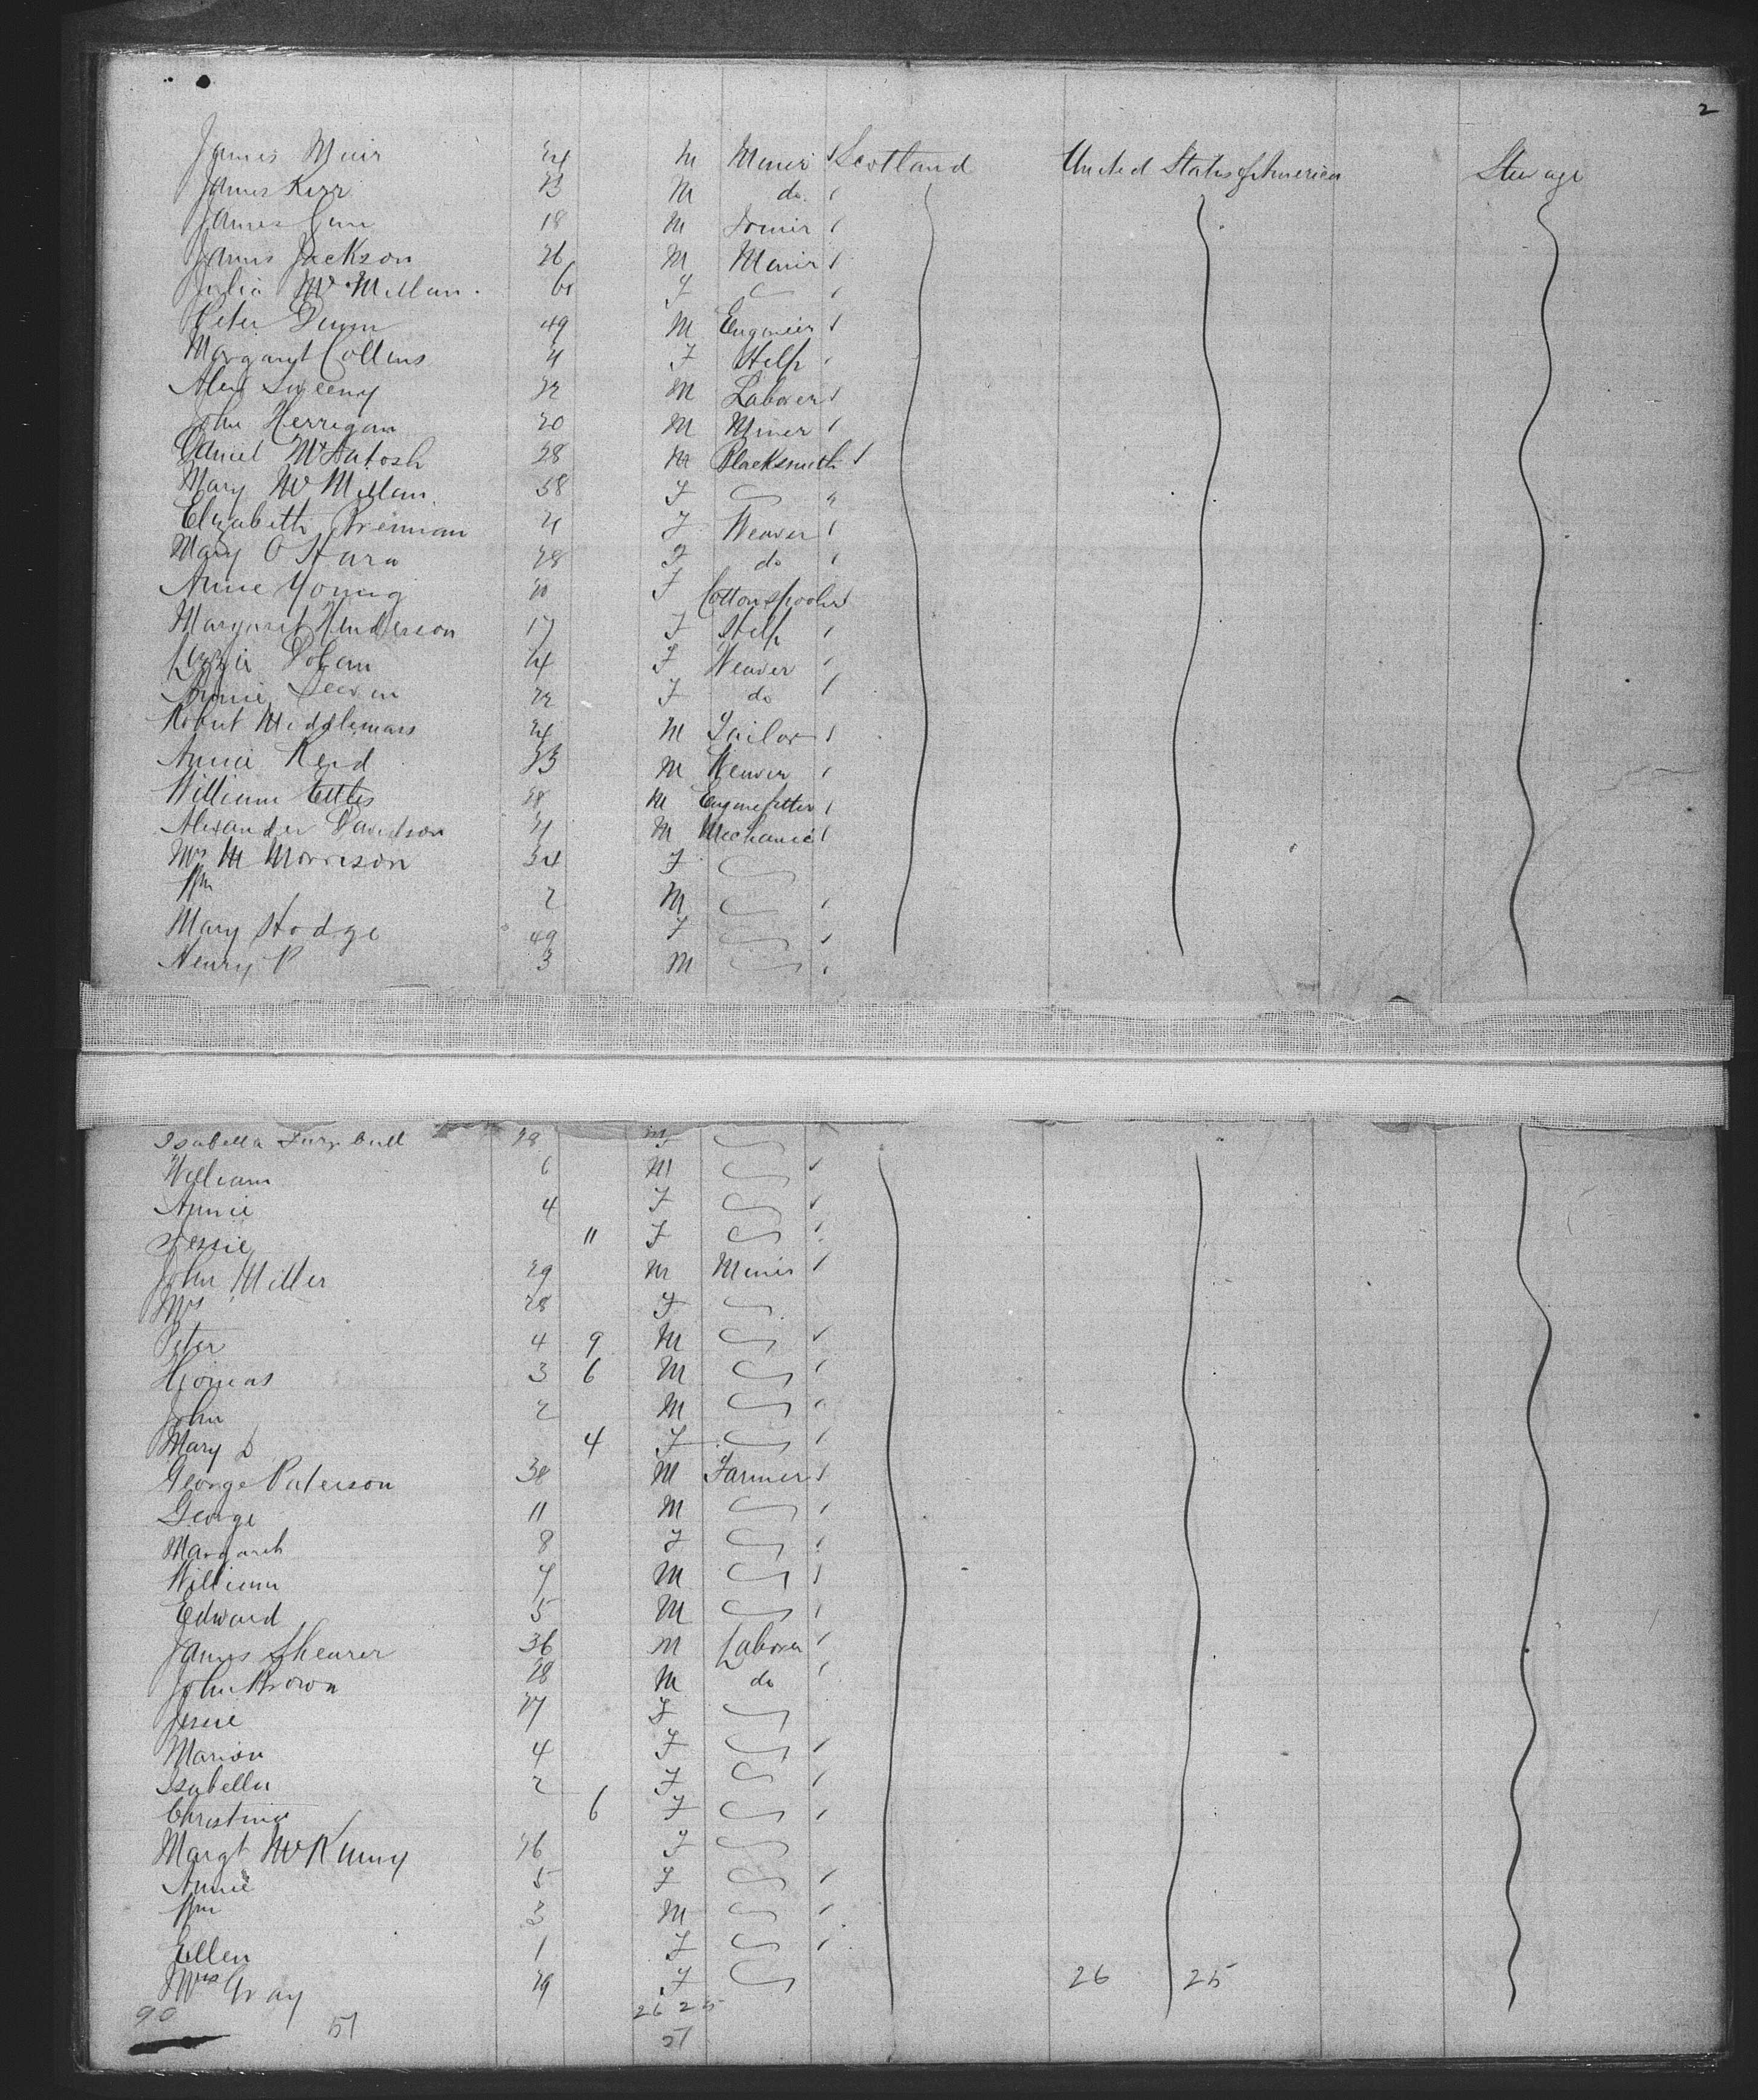 2
James Muir 24 M Miner Scotland United States of America Steerage
James Kerr 23 M do
James 18 M
James Jackson 26 M Miner
Julia McMillan 61 F
Peter Dunn 49 M Engineer
Margaret Collins 21 F Help
Alex Sweeny 22 M Laborer
John Herrigan 20 M Miner
Daniel McIntosh 28 M Blacksmith
Mary McMillan 58 F "
Elizabeth Brennan 21 F Weaver
Mary O Hara 28 F do
Annie Young 20 F Cotton spooler
Margaret Henderson 17 F Help
Lizzie Dolan 24 F Weaver
Annie 22 F do
Robert Middlemass 24 M Tailor
Annie Reid 23 M Weaver
William 28 M Enginefitter
Alexander Davidson 31 M Mechanic
Mrs M Morrison 34 F
Wm 2 M
Mary Hodge 49 F
Henry P 3 M
Isabella Turnbull 28 F
William 6 M
Annie 4 F
Jessie 11 F
John Miller 29 M Miner
Mrs 28 F
Peter 4 9 M
Thomas 3 6 M
John 2 M
Mary D 4 F
George Paterson 38 M Farmer
George 11 M
Margaret 8 F
William 7 M
Edward 5 M
James Shearer 36 M Laborer
John Brown 28 M do
Jessie 27 F
Marion 4 F
Isabella 2 F
Christina 6 F
Margt McKinny 26 F
Annie 5 F
Wm 3 M
Ellen 1 F
Mrs Gray 29 F 26 25
90 26 25
51 51